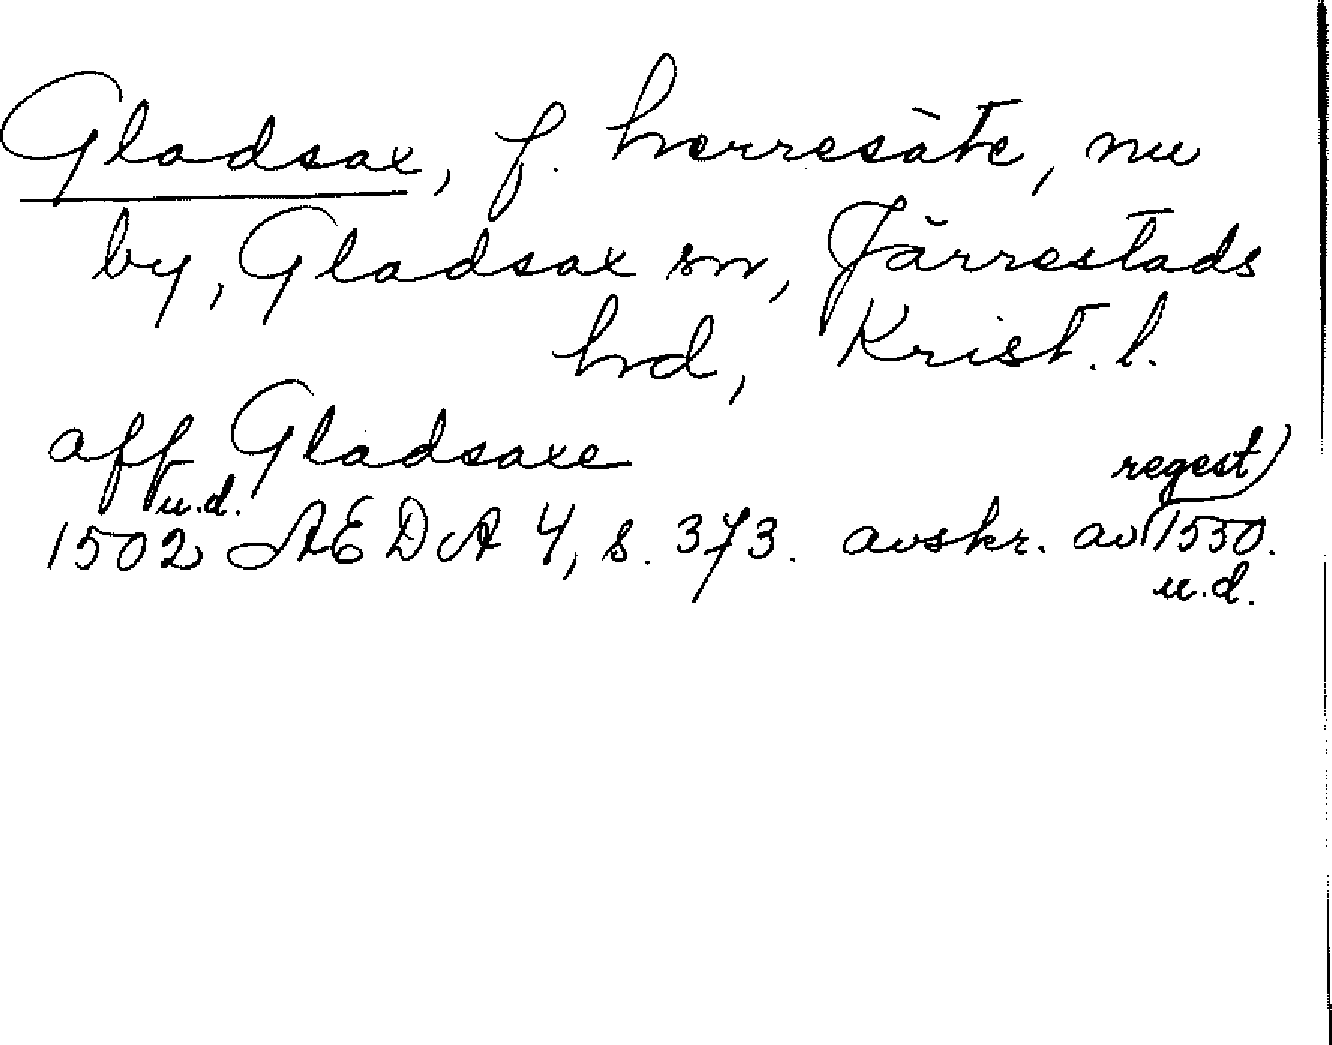 Gladsax, f. herresäte, nu
by, Gladsax sn, Järrestads
hd, Krist. l.
aff Gladsaxe
1502 u.d. AEDA 4, s. 373. avskr. av regest 1550.
u.d.